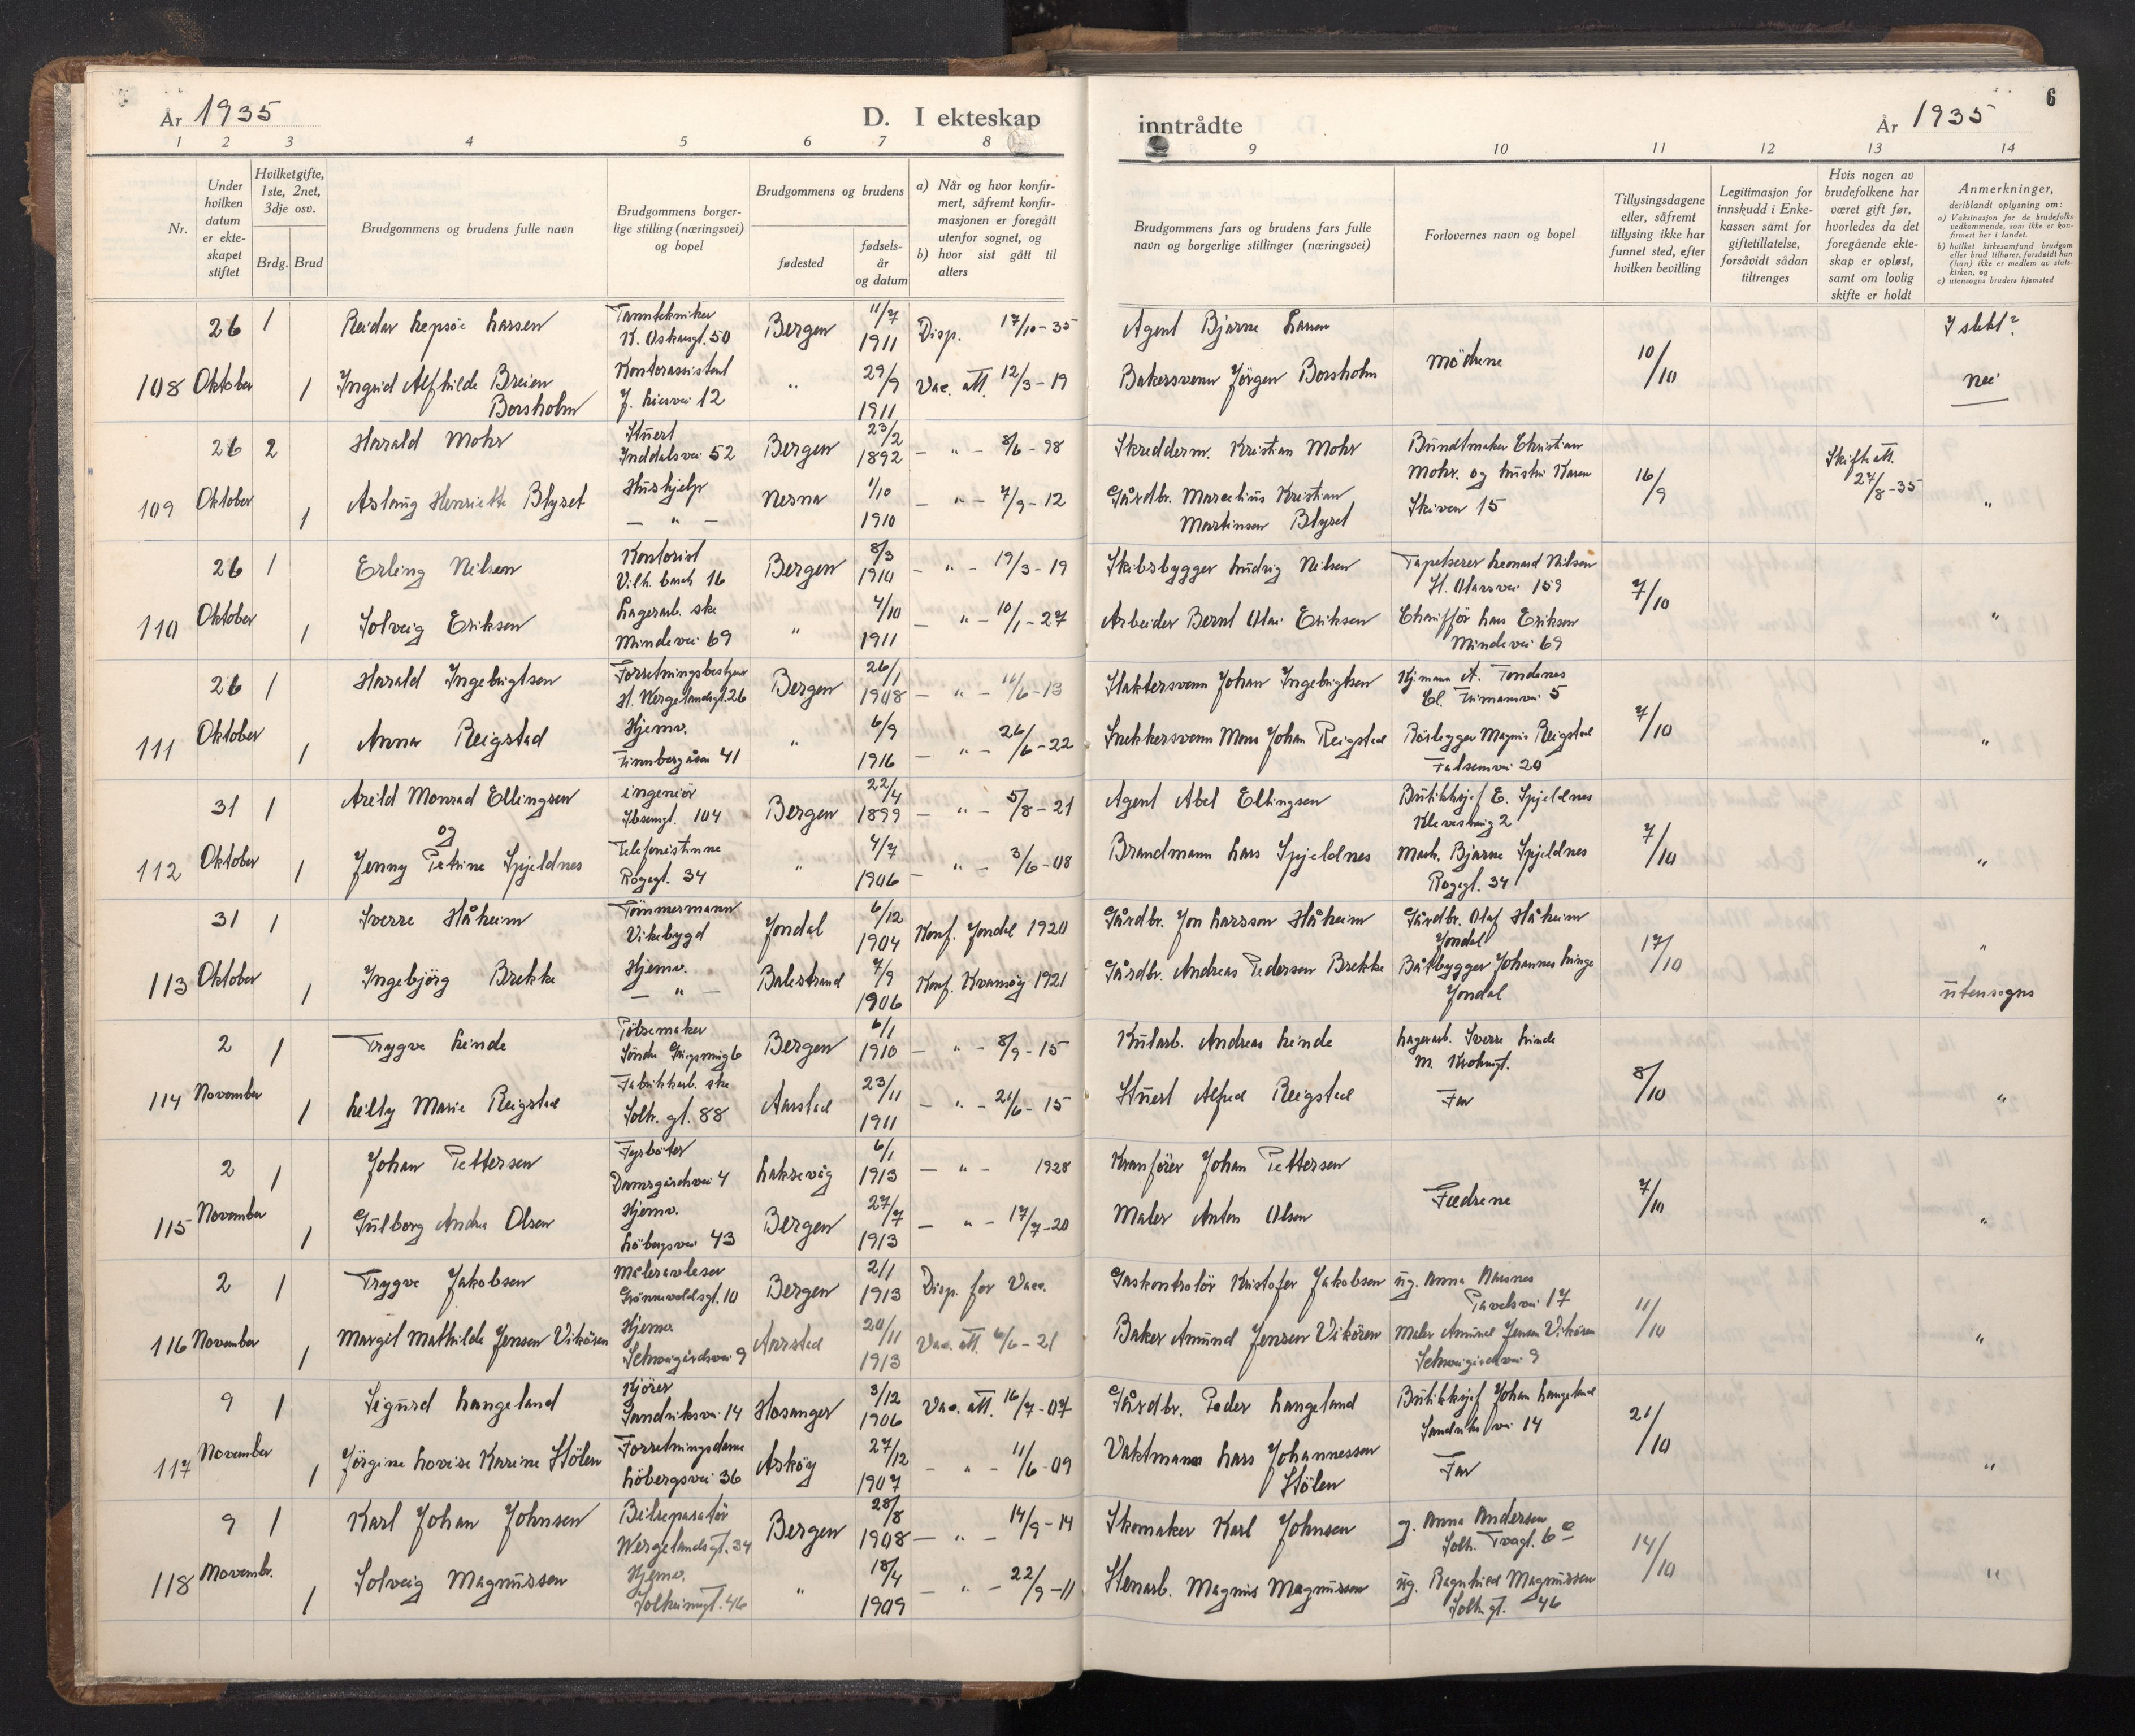 År 1935
D. I ekteskap
inntrådte
År 1935
6
1 2 3 4 5 6 7 8 9 10 11 12 13 14
Nr.
Under hvilken datum er ekte-skapet stiftet
Hvilket gifte, 1ste, 2net, 3dje osv.
Brdg. Brud
Brudgommens og brudens fulle navn
Brudgommens borger-lige stilling (næringsvei) og bopel
Brudgommens og brudens
fødested
fødsels-år og datum
a) Når og hvor konfir-mert, såfremt konfir-masjonen er foregått utenfor sognet, og
b) hvor sist gått til alters
Brudgommens fars og brudens fars fulle navn og borgerlige stillinger (næringsvei)
Forlovernes navn og bopel
Tillysingsdagene eller, såfremt tillysing ikke har funnet sted, efter hvilken bevilling
Legitimasjon for innskudd i Enke-kassen samt for giftetillatelse, forsåvidt sådan tiltrenges
Hvis nogen av brudefolkene har været gift før, hvorledes da det foregående ekte-skap er opløst, samt om lovlig skifte er holdt
Anmerkninger, deriblandt oplysning om:
a) Vaksinasjon for de brudefolks vedkommende, som ikke er kon-firmert her i landet.
b) hvilket kirkesamfund brudgom eller brud tilhører, forsåvidt han (hun) ikke er medlem av stats-kirken, og
c) utensogns bruders hjemsted
26 1 Reidar Lepsøe Larsen Tanntekniker K. Oskarsgt. 50 Bergen 11/7 1911 Disp. 17/10-35 Agent Bjarne Larsen Mödrene 10/10 I slekt?
108 Oktober 1 Ingrid Alfhilde Breien Borsholm Kontorassistent J. Liesvei 12 " 29/9 1911 Vac. att. 12/3-19 Bakersvenn Jörgen Borsholm nei
26 2 Harald Mohr Stuert Inddalsvei 52 Bergen 23/2 1892 - " - 8/6-98 Skredderm. Kristian Mohr Bundtmaker Christian Mohr. og hustru Karen Skiven 15 16/9 Skifteatt. 27/8-35
109 Oktober 1 Aslaug Henriette Blyset Hushjelp - " - Nesna 1/10 1910 - " - 7/9-12 Gårdbr. Marcelius Kristian Martinsen Blyset "
26 1 Erling Nilsen Kontorist Vilh. Bruch 16 Bergen 8/3 1910 - " - 19/3-19 Skibsbygger Ludvig Nilsen Tapetserer Leonard Nilsen St. Olavsvei 159 7/10
110 Oktober 1 Solveig Eriksen Lagerarb. ske Mindevei 69 " 4/10 1911 - " - 10/1-27 Arbeider Bernt Olai Eriksen Chaufför Lars Eriksen Mindevei 69 "
26 1 Harald Ingebrigtsen Forretningsbestyrer H. Wergelandsgt. 26 Bergen 26/1 1908 - " - 11/6-13 Slaktersvenn Johan Ingebrigtsen A. Tondenes 5 7/10
111 Oktober 1 Anna Reigstad Hjemv. Finnbergåsen 41 " 6/9 1916 - " - 26/6-22 Snekkersvenn Mons Johan Reigstad Rörlegger Magnus Reigstad Falsensvei 20 "
31 1 Arild Monrad Ellingsen og ingeniör Ibsensgt. 104 Bergen 22/4 1899 - " - 5/8-21 Agent Abel Ellingsen Butikksjef E. Spjeldnes 2 7/10
112 Oktober 1 Jenny Petrine Spjeldnes Telefonistinne Rogagt. 34 " 4/7 1906 - " - 3/6-08 Brandmann Lars Spjeldnes Mask. Bjarne Spjeldnes Rogagt. 34 "
31 1 Sverre Håheim Tömmermann Vikebygd Jondal 6/12 1904 Konf. Jondal 1920 Gårdbr. Jon Larsson Håheim Gårdbr. Olaf Håheim Jondal 17/10 "
113 Oktober 1 Ingebjörg Brekke Hjemv. - " - Balestrand 7/9 1906 Konf. Kvamsöy 1921 Gårdbr. Andreas Pedersen Brekke Båtbygger Johannes Jondal utensogns
2 1 Trygve Linde Pölsemaker Söndre 6 Bergen 6/1 1910 - " - 8/9-15 Kularb. Andreas Linde Lagerarb. Sverre Linde M. Krohnsgt. 8/10
114 November 1 Lilly Marie Reigstad Fabrikkarb. ske Solh. gt. 88 Aarstad 23/11 1911 - " - 21/6-15 Stuert Alfred Reigstad Far "
2 1 Johan Pettersen Fyrböter Damsgårdsvei 4 Laksevåg 6/1 1913 - " - 1928 Kranförer Johan Pettersen Fædrene 7/10
115 November 1 Gulborg Andrea Olsen Hjemv. Löbergsvei 43 Bergen 27/7 1913 - " - 17/7-20 Maler Anton Olsen "
2 1 Trygve Jakobsen Måleravleser Grönnevoldsgt. 10 Bergen 2/1 1913 Disp. for Vacc. Gaskontrolör Kristofer Jakobsen ug. Anna Aarsnes 17 11/10
116 November 1 Margit Mathilde Jensen Vikören Hjemv. Schweigårdsvei 9 Aarstad 20/11 1913 Vac. att. 6/6-21 Baker Amund Jensen Vikören Maler Amund Jensen Vikören Schweigårdsvei 9 "
9 1 Sigurd Langeland Kjörer Sandviksvei 14 Hosanger 3/12 1906 Vac. att. 16/7-07 Gårdbr. Peder Langeland Butikksjef Johan Langeland Sandviksvei 14 21/10
117 November 1 Jörgine Lovise Karine Stölen Forretningsdame Löbergsvei 36 Askøy 27/12 1907 - " - 11/6-09 Vaktmann Lars Johannessen Stölen Far "
9 1 Karl Johan Johnsen Bilreparatör Wergelandsgt. 34 Bergen 28/8 1908 - " - 14/9-14 Skomaker Karl Johnsen g. Anna Andersen Solh. Tvgt. 6 14/10
118 Novembr. 1 Solveig Magnussen Hjemv. Solheimsgt. 46 " 18/4 1909 - " - 22/9-11 Stenarb. Magnus Magnussen ug. Ragnhild Magnussen Solh. gt. 46 "